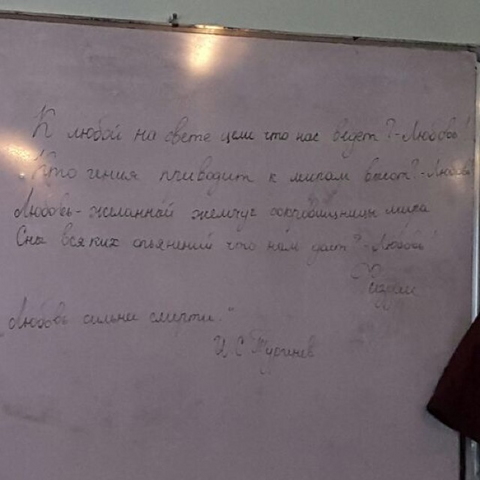 К любой на свете цели что нас ведет? - Любовь!
Кто гения приводит к мирам высот? - Любовь
Любовь - желанный жемчуг сокровищницы мира
Сна всяких опьянений что нам дает? - Любовь!
"Любовь сильнее смерти."
И С Тургенев